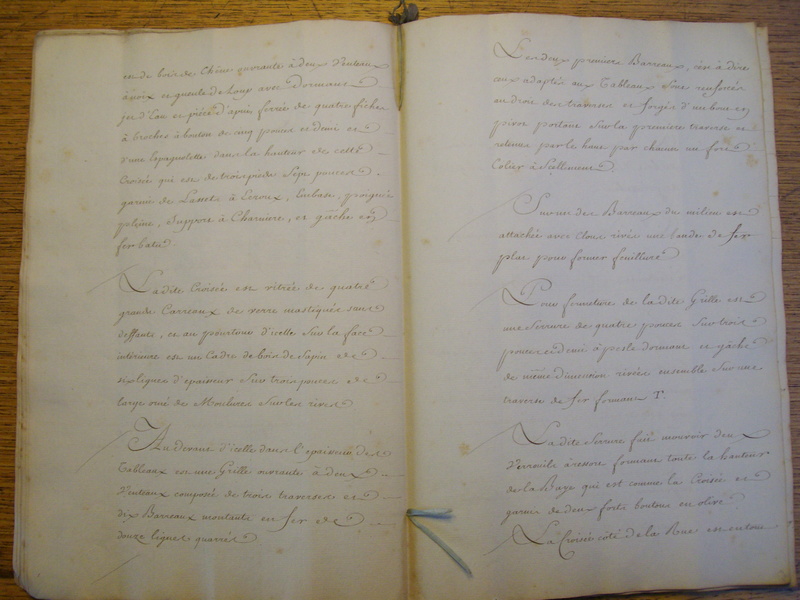 est de bois de Chêne ouvrante à deux Venteaux
à noix et gueule de Loup avec Dormant
jet d'Eau et pièce d'apui ferrée de quatre fiches
à broches à bouton de cinq pouces et demie et
d'une Espagnolette dans la hauteur de cette
Croisée qui est de trois pieds Sept pouces
garnie de Lassets à Ecroux, Embase, poignée
pleine, Support à Charniere, et gâche en
fer batu
La dite Croisée est vitrée de quatre
grands Carreaux de verre mastiqués sans
deffauts, et au pourtour d'icelle Sur la face
intérieure est un Cadre de bois de Sapin de
six lignes d'epaisseur Sur trois pouces de
large orné de Moulures Sur les rives
Au devant d'icelle dans l'epaisseur des
Tableaux est une Grille ouvrante à deux
Venteaux composée de trois traverses et
dix Barreaux montants en fer de
douze lignes quarrés
Les deux premiers Barreaux, c'est à dire
ceux adaptés aux Tableaux Sont renforcés
au droit des traverses et forgés d'un bout en
pivot portant Sur la premiere traverse et
retenus par le haut par chacun un fort
Colier à Scellement
Sur un des Barreaux du milieu est
attachée avec cloux rivés une bande de fer
plat pour former feuillure
Pour fermeture de la dite Grille est
une Serrure de quatre pouces Sur trois
pouces et demi à pesle dormant et gâche
de même dimention rivées ensemble Sur une
traverse de fer formant T.
La dite Serrure fait mouvoir deux
Verrouils à ressort formant toute la hauteur
de la Baye qui est comme la Croisée et
garnis de deux forts boutons en olive
La Croisée côté de la Rue est en tout